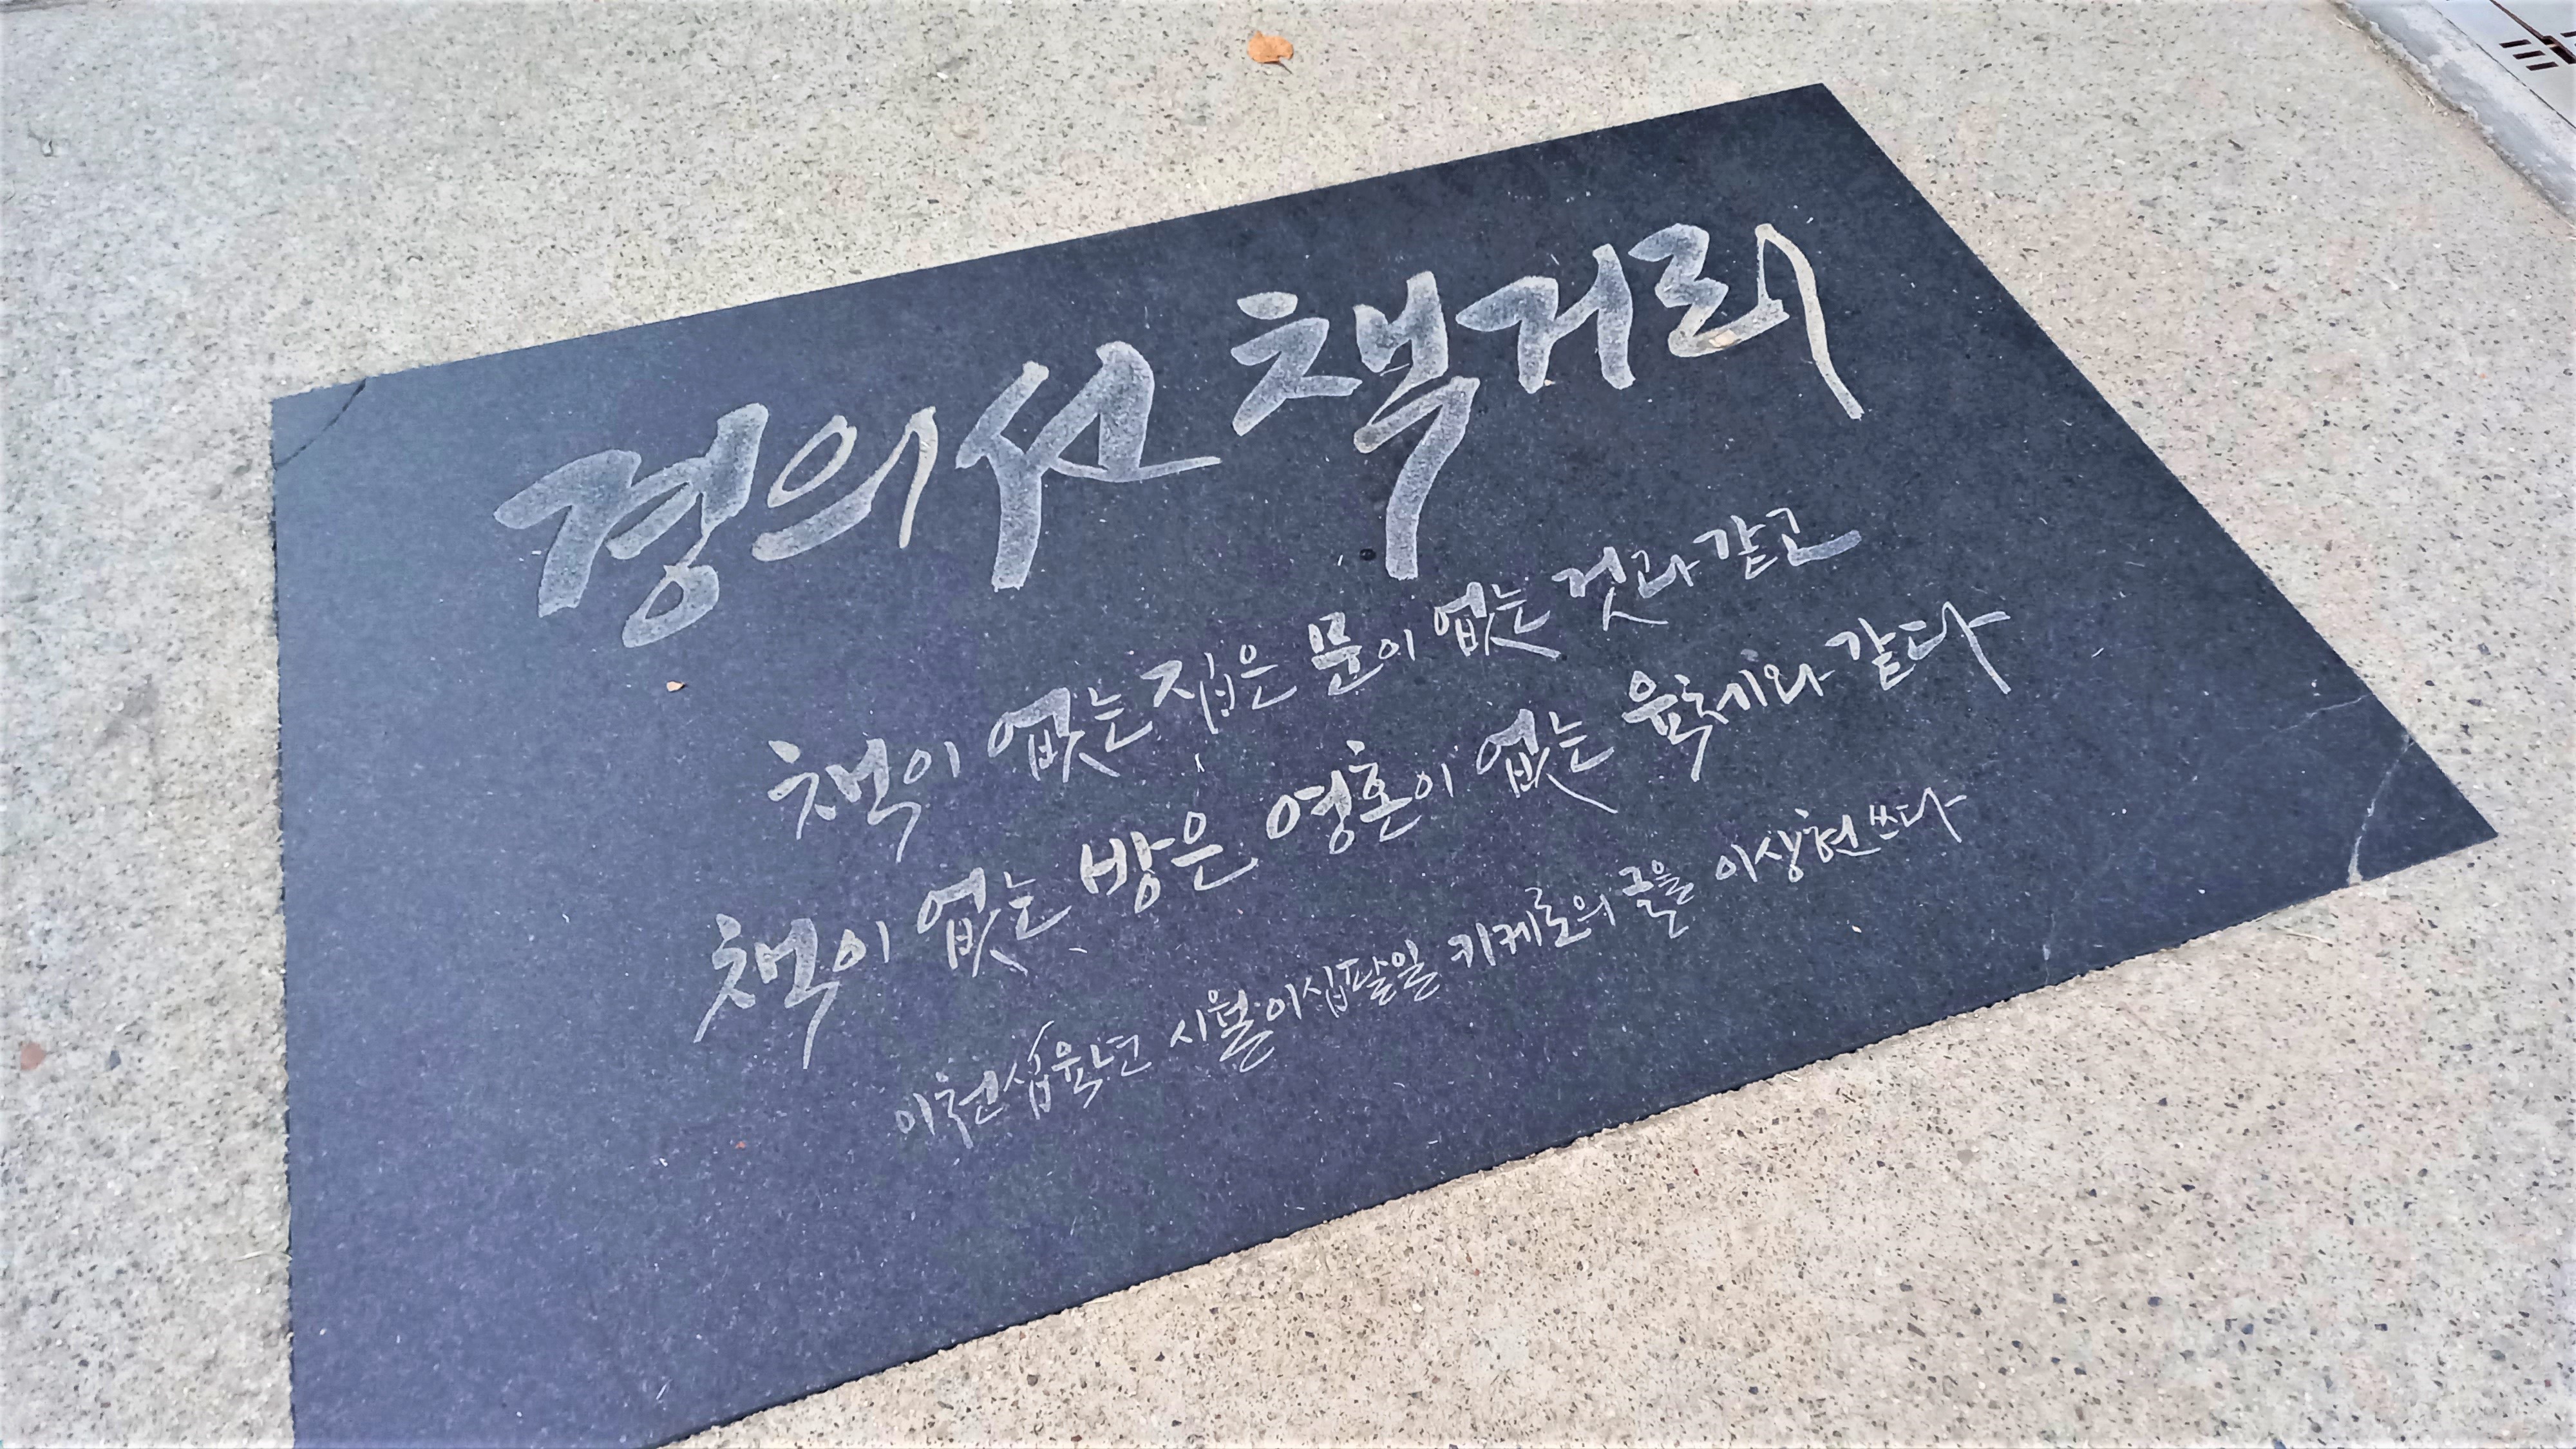 경의선 책거리
책이 없는 집은 문이 없는 것과 같고
책이 없는 방은 영혼이 없는 육체와 같다
이천십육년 시월이십팔일 키케로의 글을 이상현 쓰다